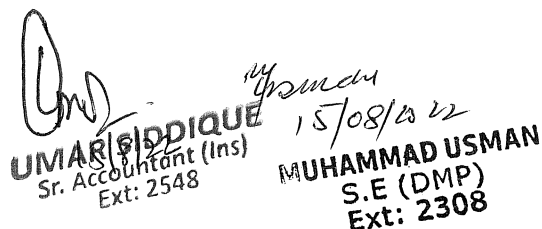 UMAR SIDDIQUE
15/8/22
Sr. Accountant (Ins)
Ext: 2548
15/08/2022
MUHAMMAD USMAN
S.E (DMP)
Ext: 2308